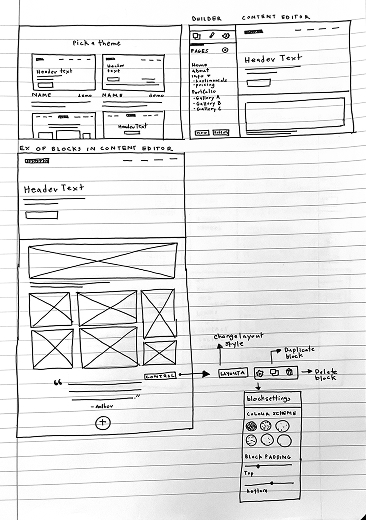 BUILDER CONTENT EDITOR
Pick a theme
Header Text
Header text
NAME demo
NAME demo
Header Text
PAGES
Home
About
Info
- testimonials
- pricing
Portfolio
- Gallery A
- Gallery B
- Gallery C
Header Text
EX OF BLOCKS IN CONTENT EDITOR
Header Text
“
”
- author
CONTROL
change layout
style
Duplicate
block
LAYOUT A
Delete
block
block settings
COLOUR SCHEME
BLOCK PADDING
Top
bottom